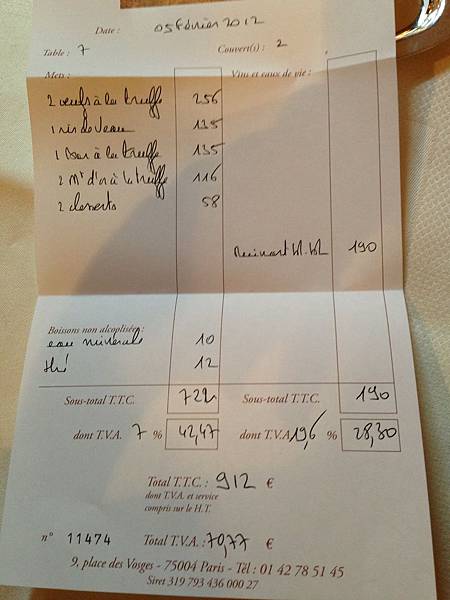 Date : 05 février 2012
Table : 7 Couvert(s) : 2
Mets : Vins et eaux de vie :
2 oeufs à la truffe 256
1 ris de veau 135
1 Bar à la truffe 135
2 Mt d'or à la truffe 116
2 desserts 58
Ruinart bl. bl. 190
Boissons non alcoolisées :
eau minérale 10
thé 12
Sous-total T.T.C. 722 Sous-total T.T.C. 190
dont T.V.A. 7 % 42,47 dont T.V.A. 19,6 % 28,30
Total T.T.C. : 912 €
dont T.V.A. et service
compris sur le H.T.
n° 11474 Total T.V.A. : 70,77 €
9, place des Vosges - 75004 Paris - Tél : 01 42 78 51 45
Siret 319 793 436 000 27